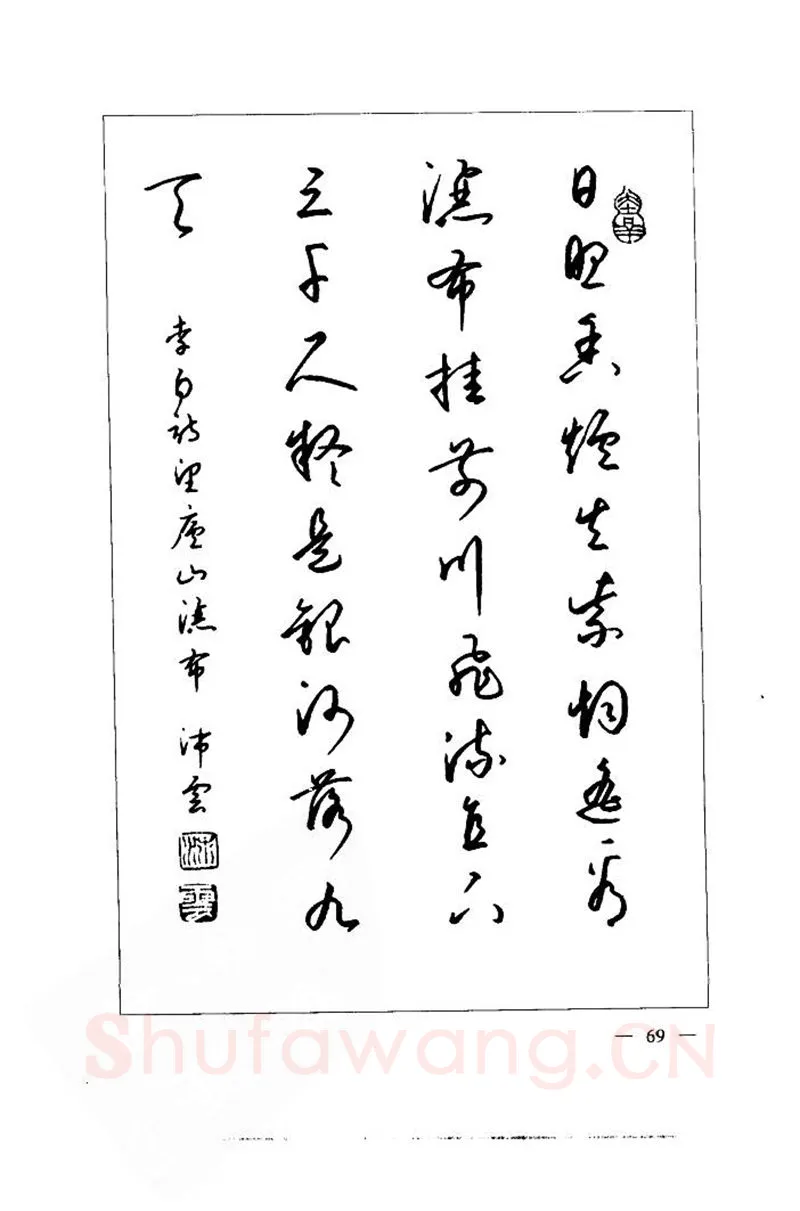 日照香爐生紫烟遙看
瀑布挂前川飛流直下
三千尺疑是銀河落九
天
李白詩望廬山瀑布 沛雲
沛
雲
— 69 —
Shufawang.CN